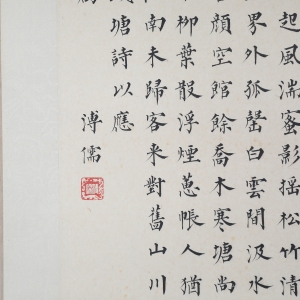 起風湍蜜影搖松竹清
界外孤罄白雲間汲水
顏空館餘喬木寒塘尚
柳葉散浮煙蔥帳人猶
南未歸客來對舊山川
塘詩以應
溥儒